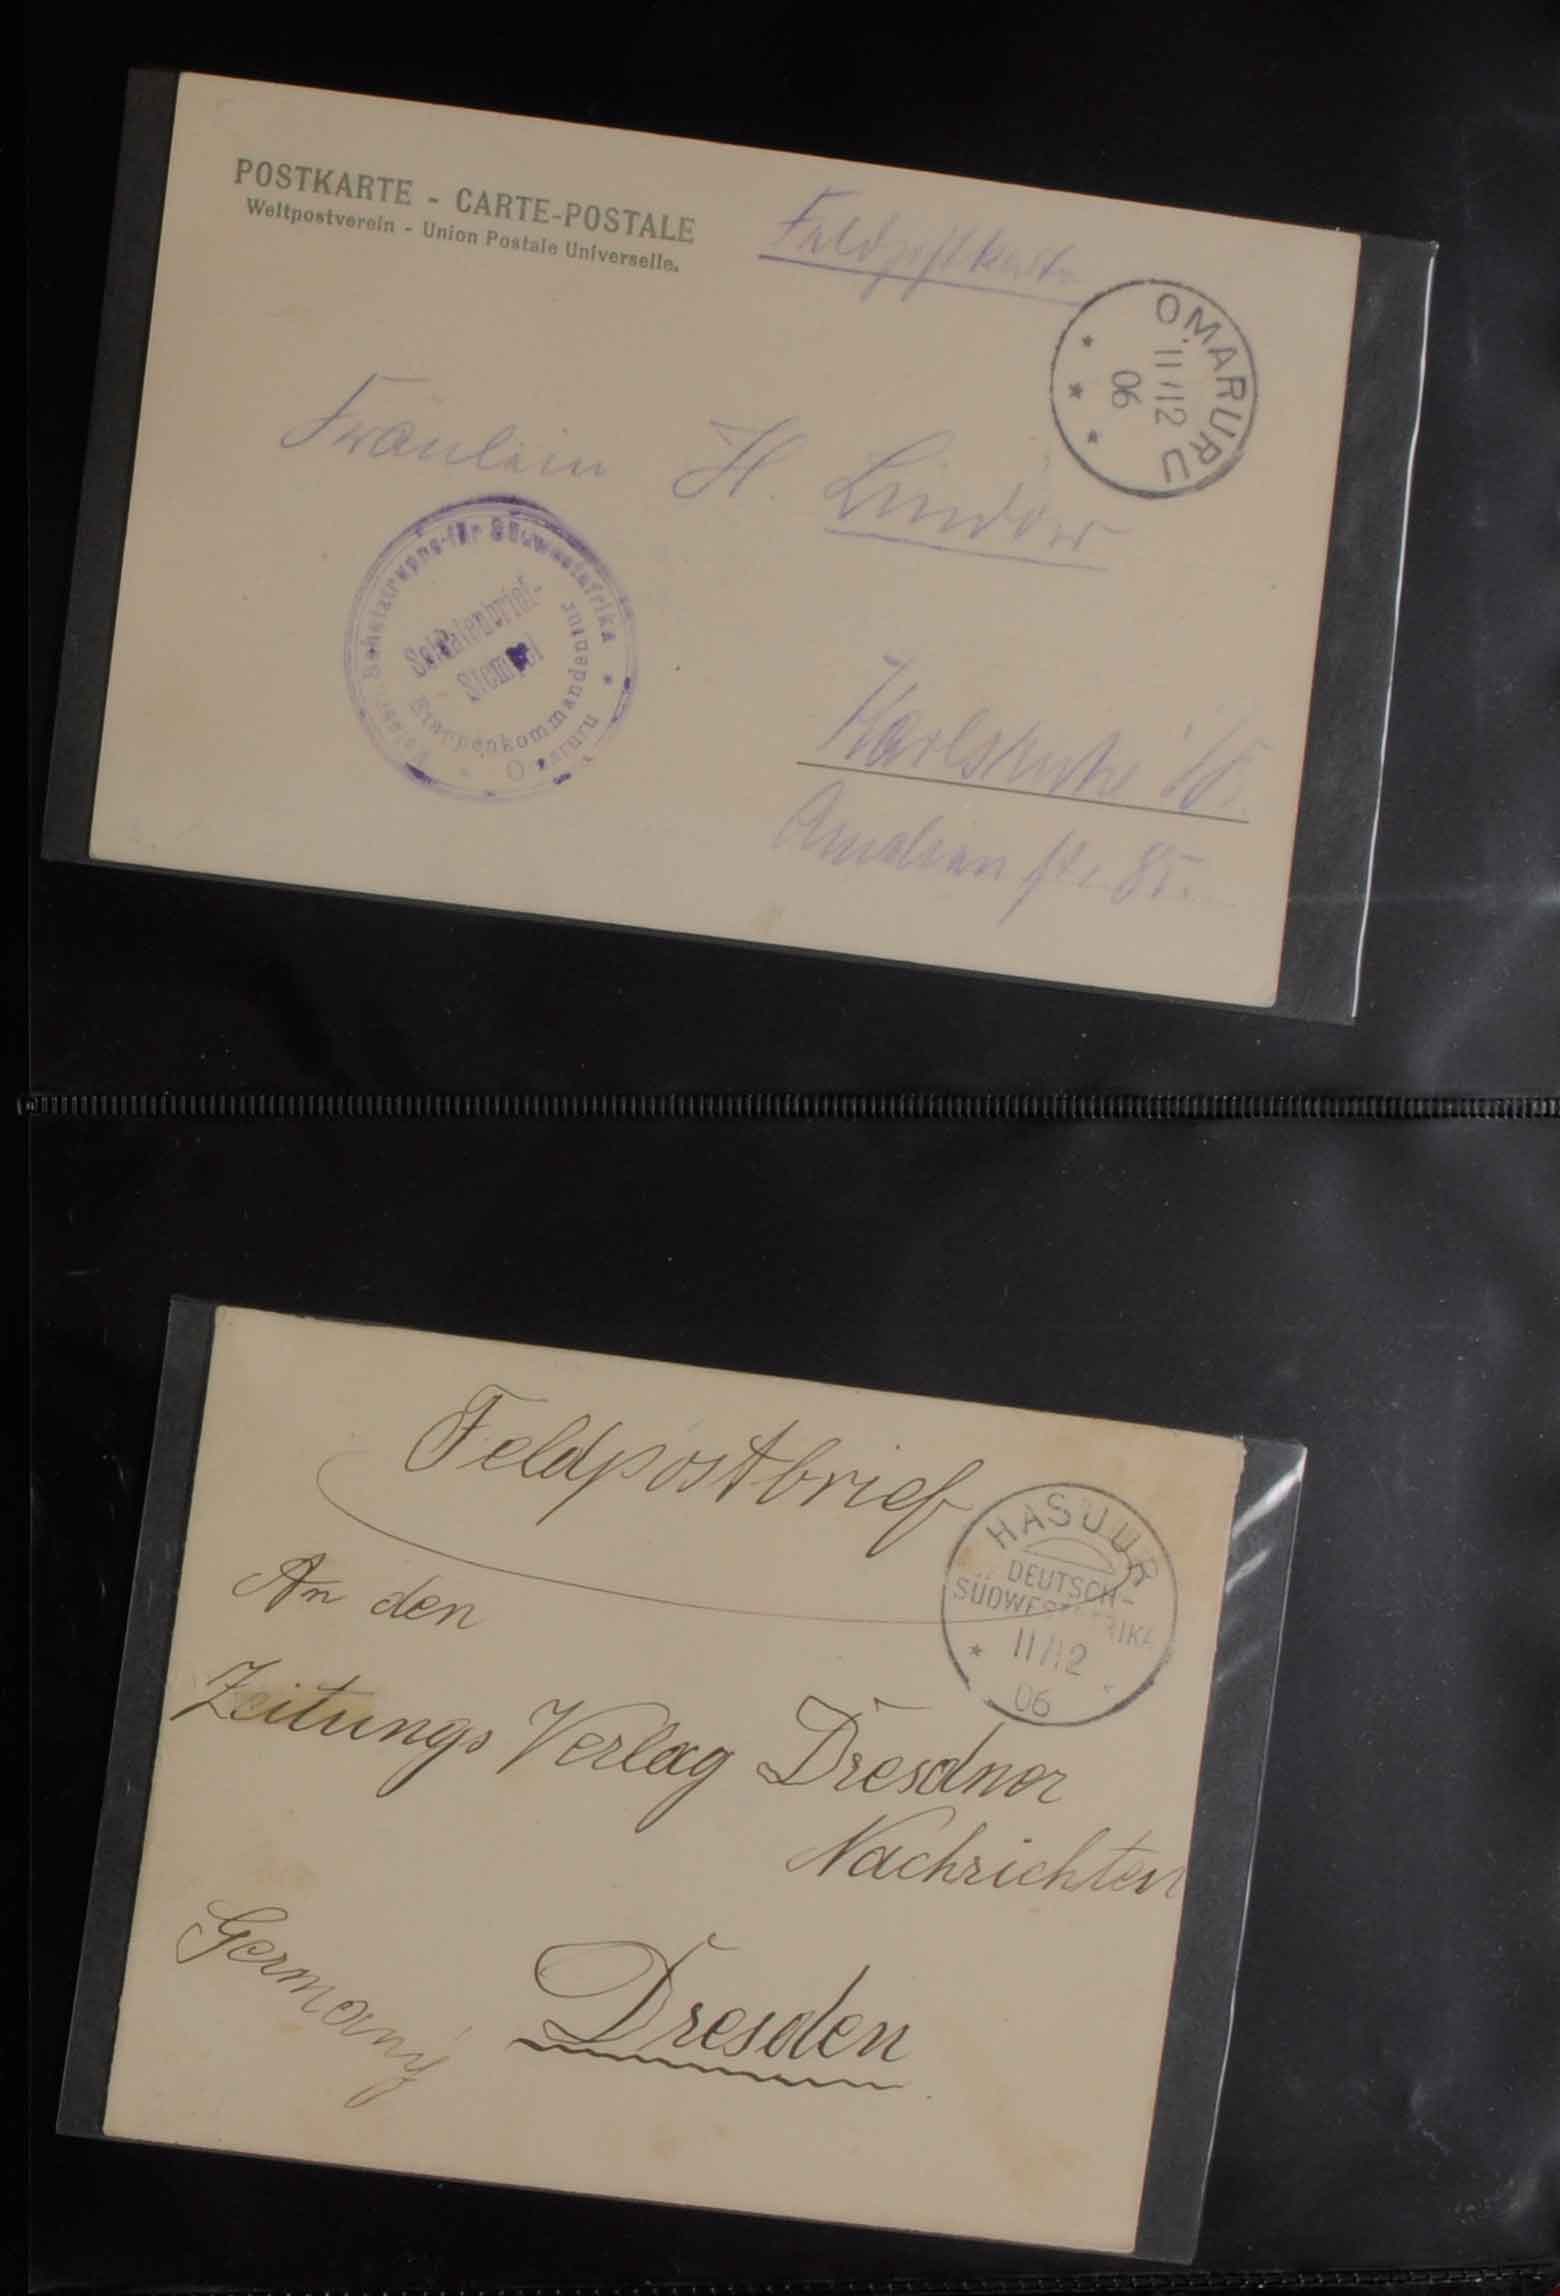 POSTKARTE - CARTE-POSTALE
Weltpostverein - Union Postale Universelle.
Feldpostkarte
OMARURU
11/12
06
Fräulein H. Lindow
Kaiserl. Schutztruppe für Südwestafrika
Soldatenbrief-
Stempel
Etappenkommandantur
Omaruru
Karlsruhe i/B.
Amalienstr. 85.
Feldpostbrief
HASUUR
DEUTSCH-
SÜDWESTAFRIKA
11/12
06
An den
Zeitungs Verlag Dresdner
Nachrichten
Germany
Dresden